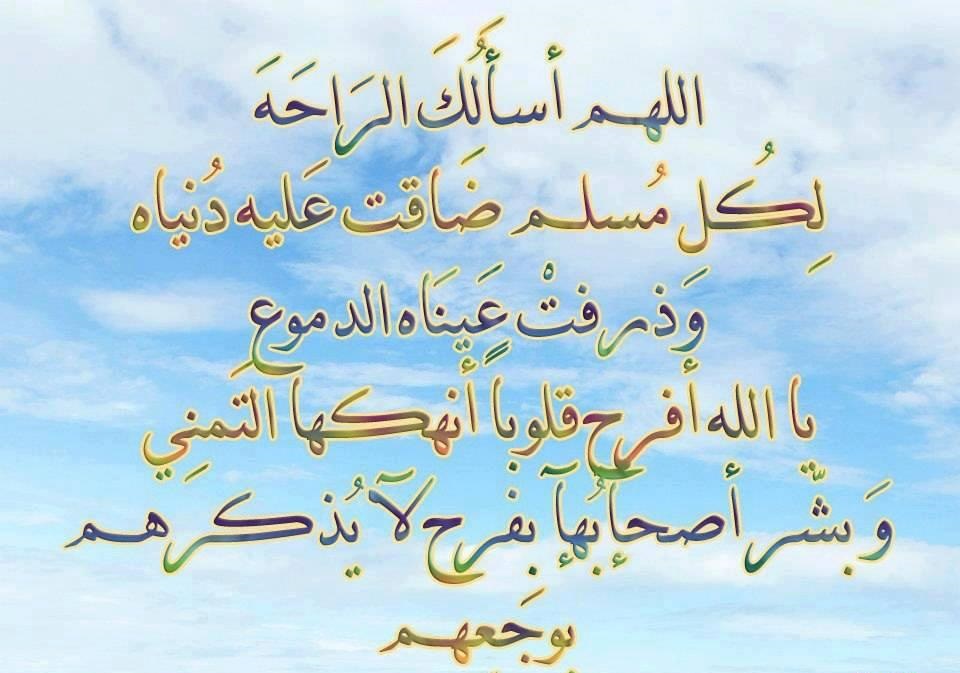 اللهم أسأَلُكَ الرَاحَةَ
لِكُل مُسلم ضَاقت عَليه دُنياه
وَذرفتْ عَينَاه الدموع
يا الله أفرح قلوباً أنهكها التَمنِي
وَ بشّر أصحآبُهآ بفرح لآ يُذكرهم
بوجَعِهم